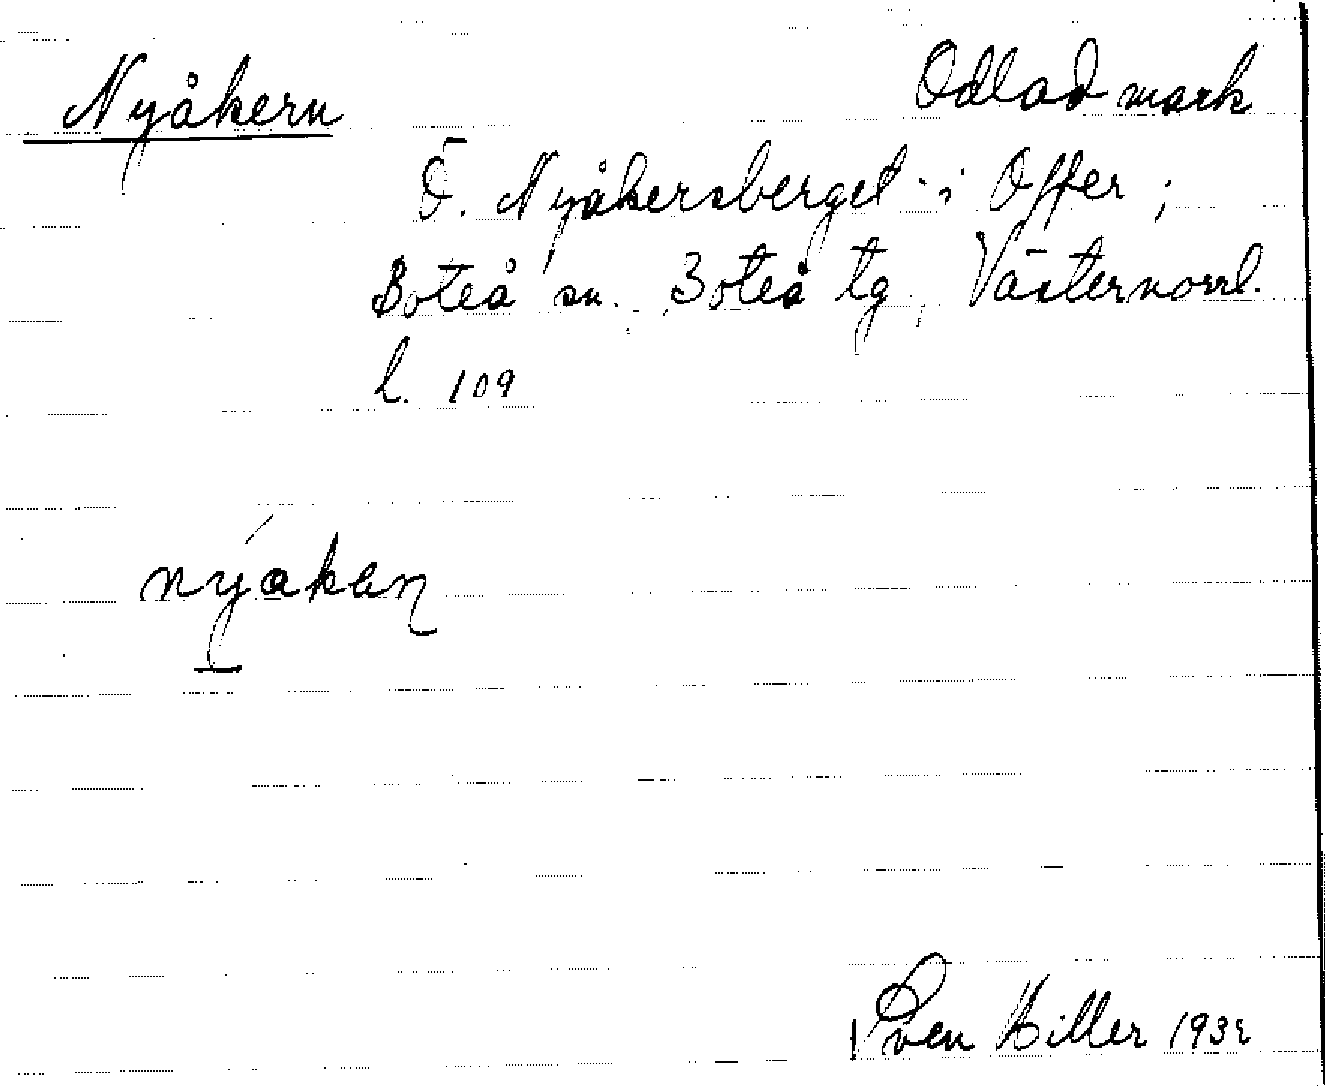 Nyåkern
Odlad mark
Ö. Nyåkersberget i Offer;
Boteå sn. Boteå tg, Västernorrl.
l. 109
nyákaɳ
Sven Hiller 1932